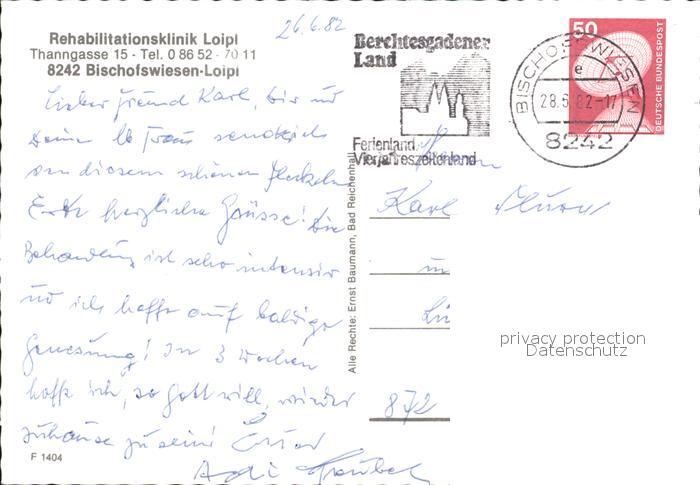 26.6.82
Rehabilitationsklinik Loipl
Thanngasse 15 - Tel. 0 86 52 - 70 11
8242 Bischofswiesen-Loipl
Lieber Freund Karl, Dir und
Deine lb Frau sende ich
von diesem schönen Fleckchen
Erde herzliche Grüsse! Die
Behandlung ist sehr intensiv
und ich hoffe auf baldige
Genesung! In 3 Wochen
hoffe ich, so Gott will, wieder
zuhause zu sein! Euer
Adi
F 1404
Berchtesgadener
Land
Ferienland
Vierjahreszeitenland
BISCHOFSWIESEN
e
28.6.82-17
8242
50
DEUTSCHE BUNDESPOST
Alle Rechte: Ernst Baumann, Bad Reichenhall
Herrn
Karl
872
privacy protection
Datenschutz